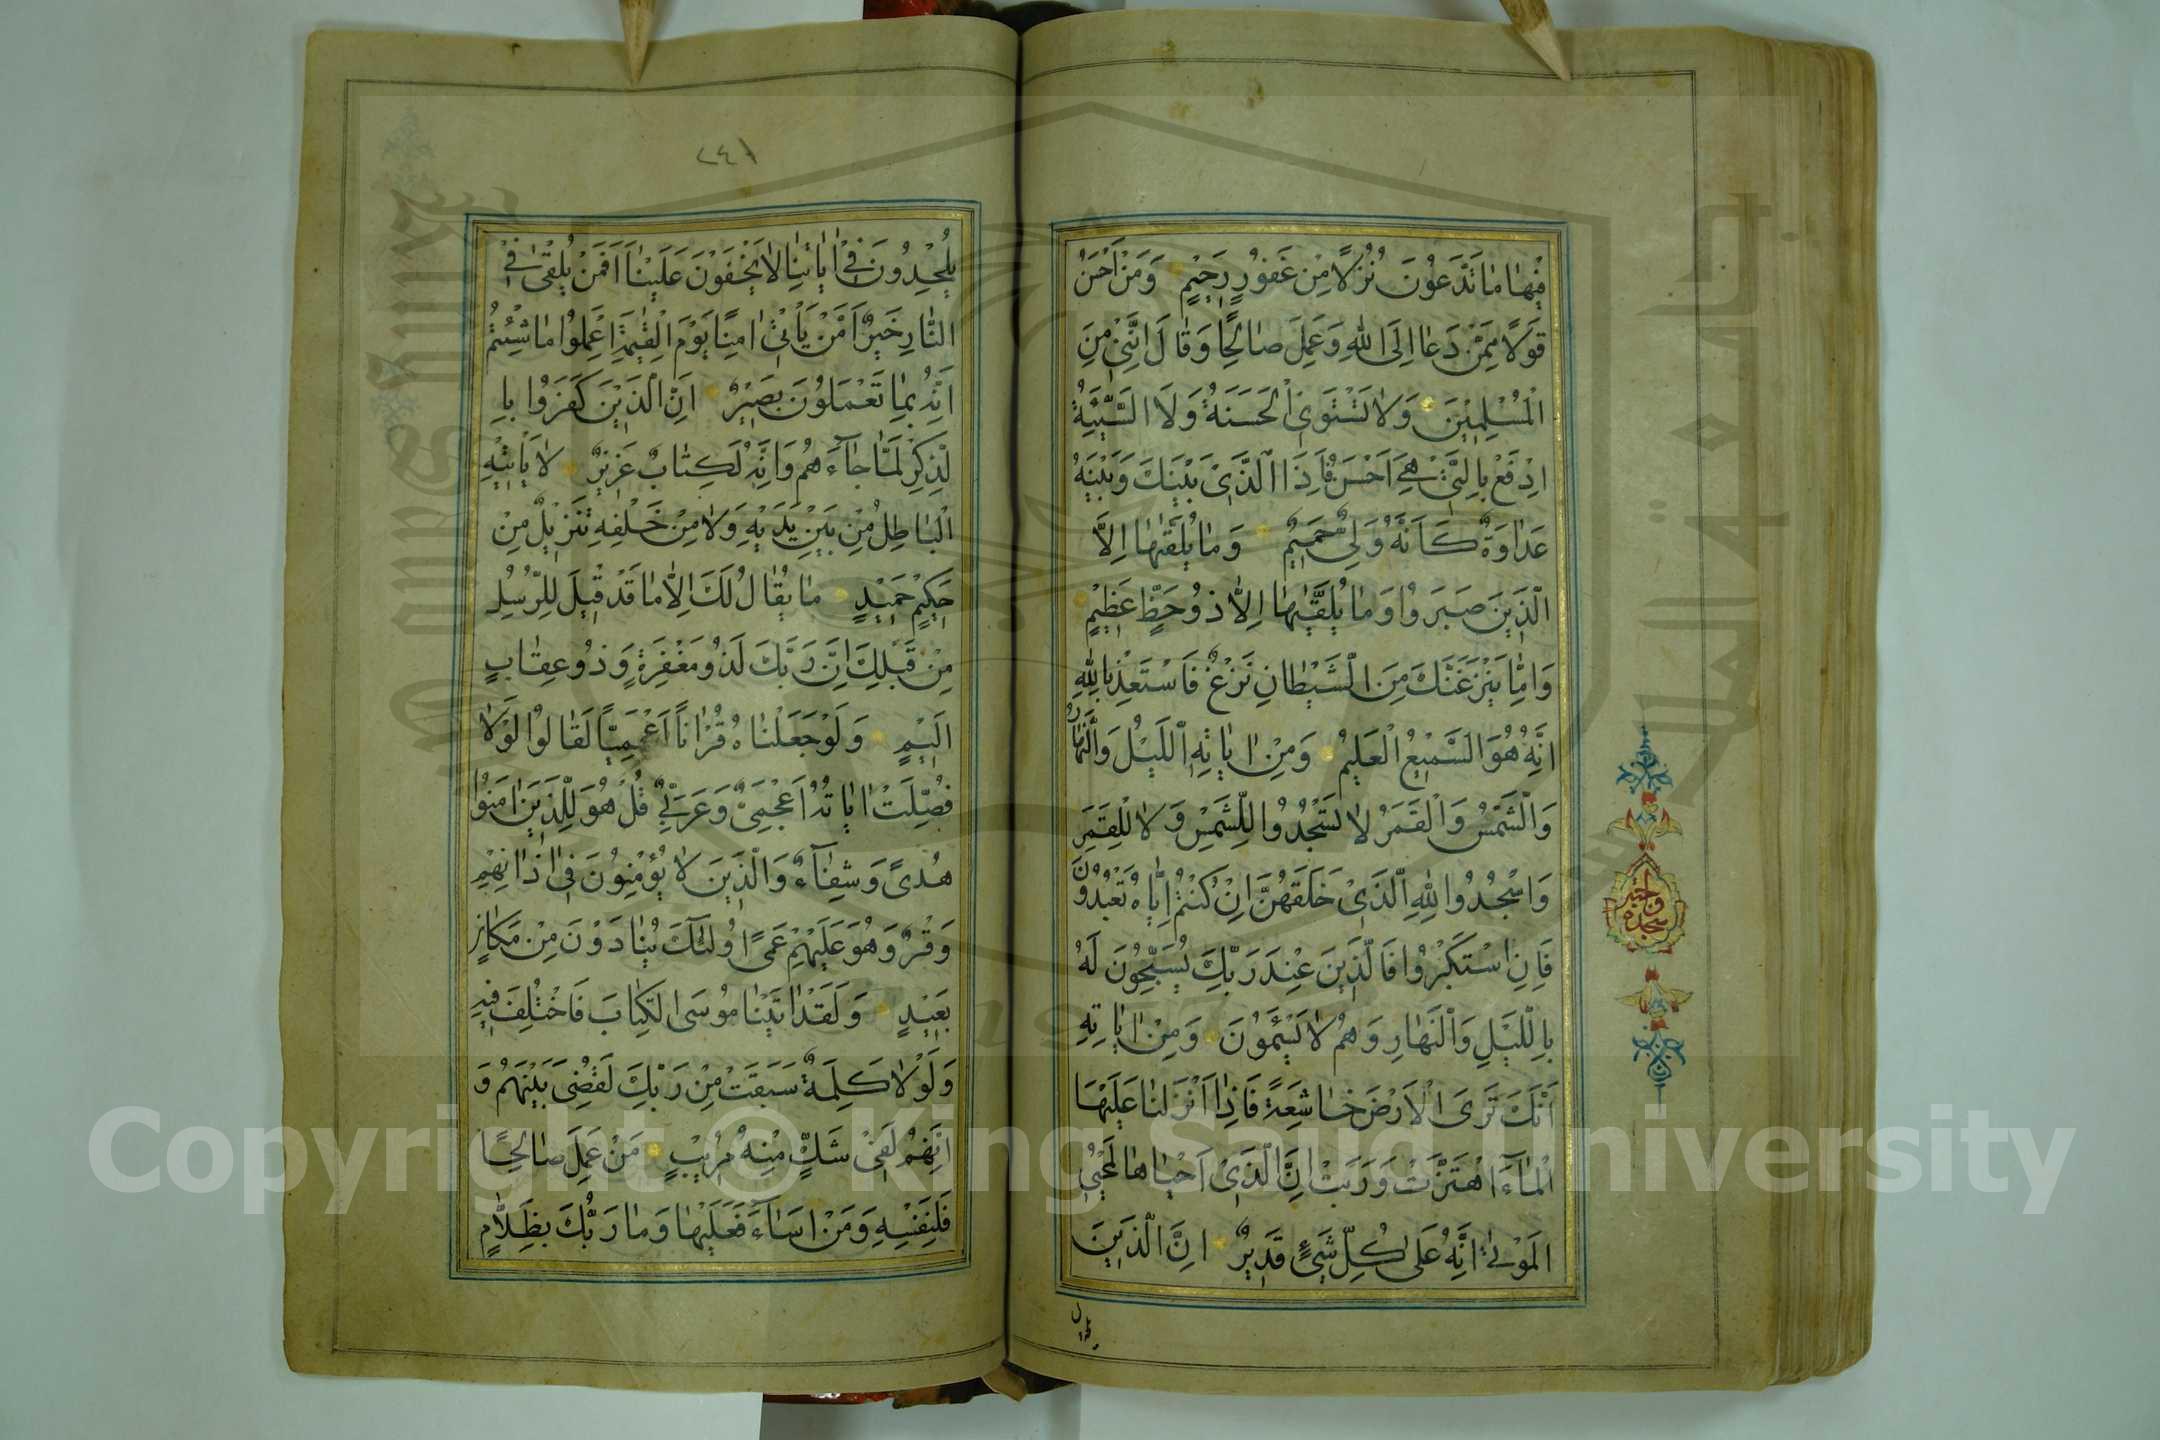 فيها ما تدعون نزلا من غفور رحيم ومن احسن
قولا ممن دعا الى الله وعمل صالحا وقال اننى من
المسلمين ولا تستوى الحسنة ولا السيئة
ادفع بالتى هى احسن فاذا الذى بينك وبينه
عداوة كانه ولى حميم وما يلقيها الا
الذين صبروا وما يلقيها الا ذو حظ عظيم
واما ينزغنك من الشيطان نزغ فاستعذ بالله
انه هو السميع العليم ومن اياته الليل والنهار
والشمس والقمر لا تسجدوا للشمس ولا للقمر
واسجدوا لله الذى خلقهن ان كنتم اياه تعبدون
فان استكبروا فالذين عند ربك يسبحون له
بالليل والنهار وهم لا يسئمون ومن اياته
انك ترى الارض خاشعة فاذا انزلنا عليها
الماء اهتزت وربت ان الذى احياها لمحيى
الموتى انه على كل شىء قدير ان الذين
سجده واجبه
٢٤١
يلحدون فى اياتنا لا يخفون علينا افمن يلقى فى
النار خير امن ياتى امنا يوم القيمة اعملوا ما شئتم
انه بما تعملون بصير ان الذين كفروا با
لذكر لما جاءهم وانه لكتاب عزيز لا ياتيه
الباطل من بين يديه ولا من خلفه تنزيل من
حكيم حميد ما يقال لك الا ما قد قيل للرسل
من قبلك ان ربك لذو مغفرة وذو عقاب
اليم ولو جعلناه قرانا اعجميا لقالوا لولا
فصلت اياته اعجمى وعربى قل هو للذين امنوا
هدى وشفاء والذين لا يؤمنون فى اذانهم
وقر وهو عليهم عمى اولئك ينادون من مكان
بعيد ولقد اتينا موسى الكتاب فاختلف فيه
ولولا كلمة سبقت من ربك لقضى بينهم و
انهم لفى شك منه مريب من عمل صالحا
فلنفسه ومن اساء فعليها وما ربك بظلام
Copyright © King Saud University